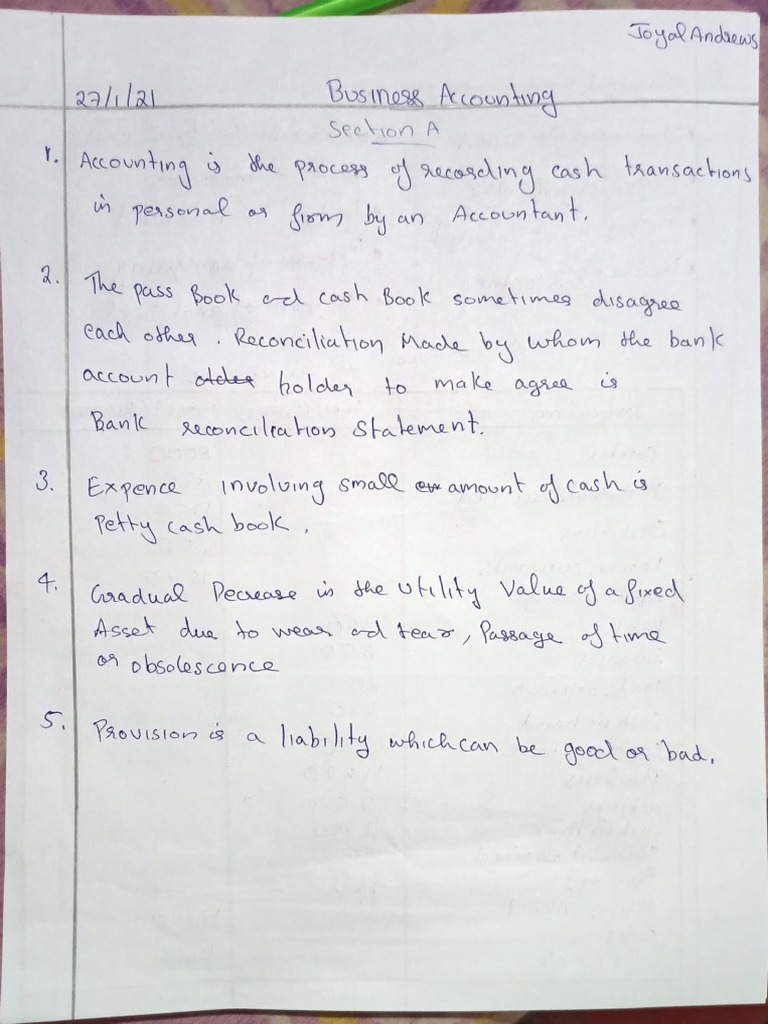 Joyal Andrews
27/1/21 Business Accounting
Section A
1. Accounting is the process of recording cash transactions
in personal or firm by an Accountant.
2. The pass Book ad cash Book sometimes disagree
each other. Reconciliation Made by whom the bank
account holder to make agree is
Bank reconciliation Statement.
3. Expence involving small amount of cash is
Petty cash book.
4. Gradual Decrease in the utility Value of a fixed
Asset due to wear ad tear, Passage of time
or obsolescence
5. Provision is a liability which can be good or bad.